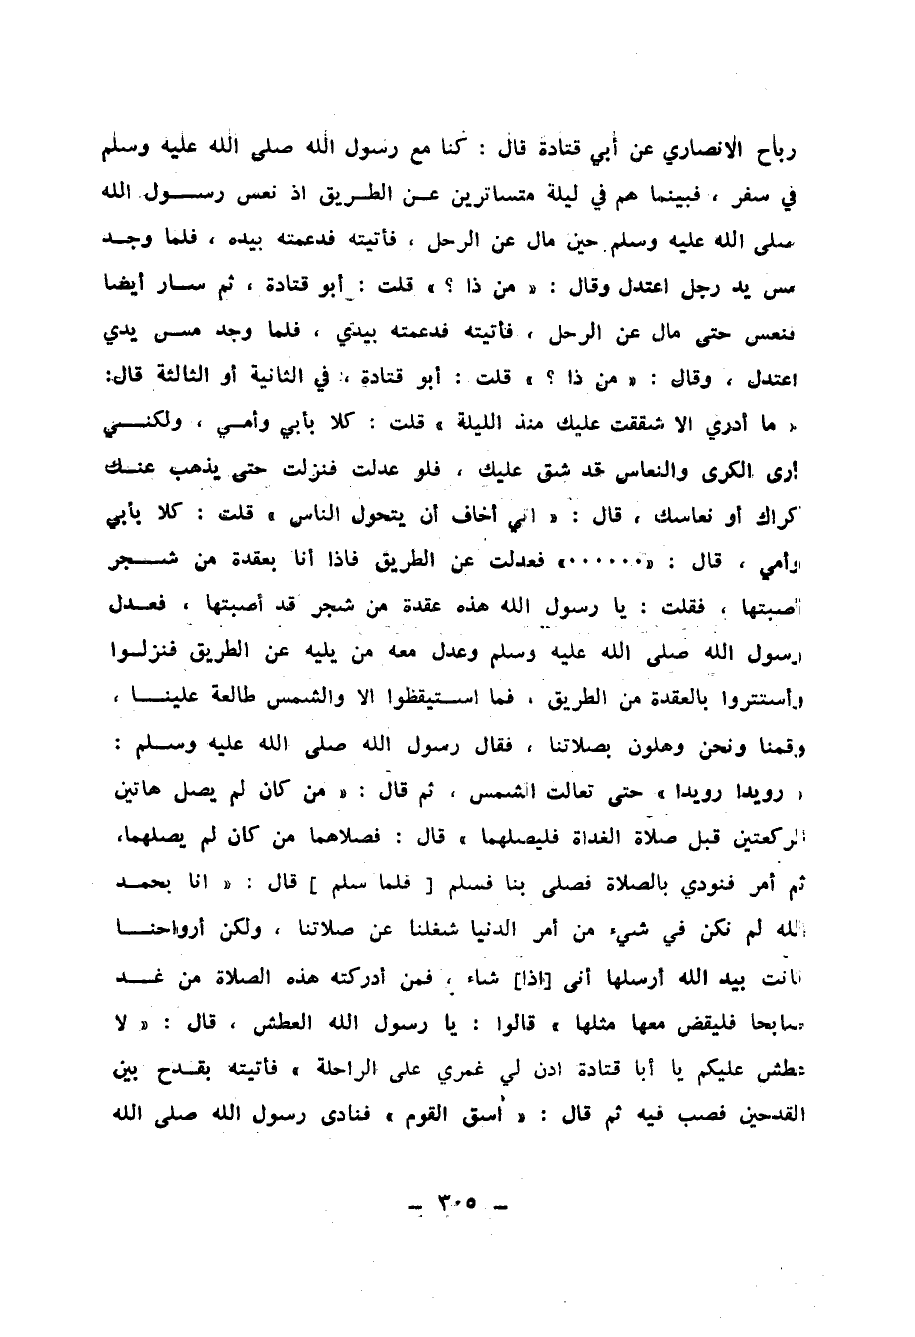 رباح الانصاري عن أبي قتادة قال : كنا مع رسول الله صلى الله عليه وسلم
في سفر ، فبينما هم في ليلة متساترين عن الطريق اذ نعس رسول الله
صلى الله عليه وسلم حين مال عن الرحل ، فأتيته فدعمته بيده ، فلما وجد
مس يد رجل اعتدل وقال : « من ذا ؟ » قلت : أبو قتادة ، ثم سار أيضا
فنعس حتى مال عن الرحل ، فأتيته فدعمته بيدي ، فلما وجد مس يدي
اعتدل ، وقال : « من ذا ؟ » قلت : أبو قتادة ، في الثانية أو الثالثة قال:
« ما أدري الا شققت عليك منذ الليلة » قلت : كلا بأبي وأمي ، ولكني
أرى الكرى والنعاس قد شق عليك ، فلو عدلت فنزلت حتى يذهب عنك
كراك أو نعاسك ، قال : « اني أخاف أن يتحول الناس » قلت : كلا بأبي
وأمي ، قال : «······» فعدلت عن الطريق فاذا أنا بعقدة من شجر
أصبتها ، فقلت : يا رسول الله هذه عقدة من شجر قد أصبتها ، فعدل
رسول الله صلى الله عليه وسلم وعدل معه من يليه عن الطريق فنزلوا
وأستتروا بالعقدة من الطريق ، فما استيقظوا الا والشمس طالعة علينا ،
وقمنا ونحن وهلون بصلاتنا ، فقال رسول الله صلى الله عليه وسلم :
« رويدا رويدا » حتى تعالت الشمس ، ثم قال : « من كان لم يصل هاتين
الركعتين قبل صلاة الغداة فليصلهما » قال : فصلاهما من كان لم يصلهما،
ثم أمر فنودي بالصلاة فصلى بنا فسلم [ فلما سلم ] قال : « انا بحمد
الله لم نكن في شيء من أمر الدنيا شغلنا عن صلاتنا ، ولكن أرواحنا
كانت بيد الله أرسلها أنى [اذا] شاء ، فمن أدركته هذه الصلاة من غد
صابحا فليقض معها مثلها » قالوا : يا رسول الله العطش ، قال : « لا
عطش عليكم يا أبا قتادة ادن لي غمري على الراحلة » فأتيته بقدح بين
القدحين فصب فيه ثم قال : « أسق القوم » فنادى رسول الله صلى الله
– ٣٠٥ –